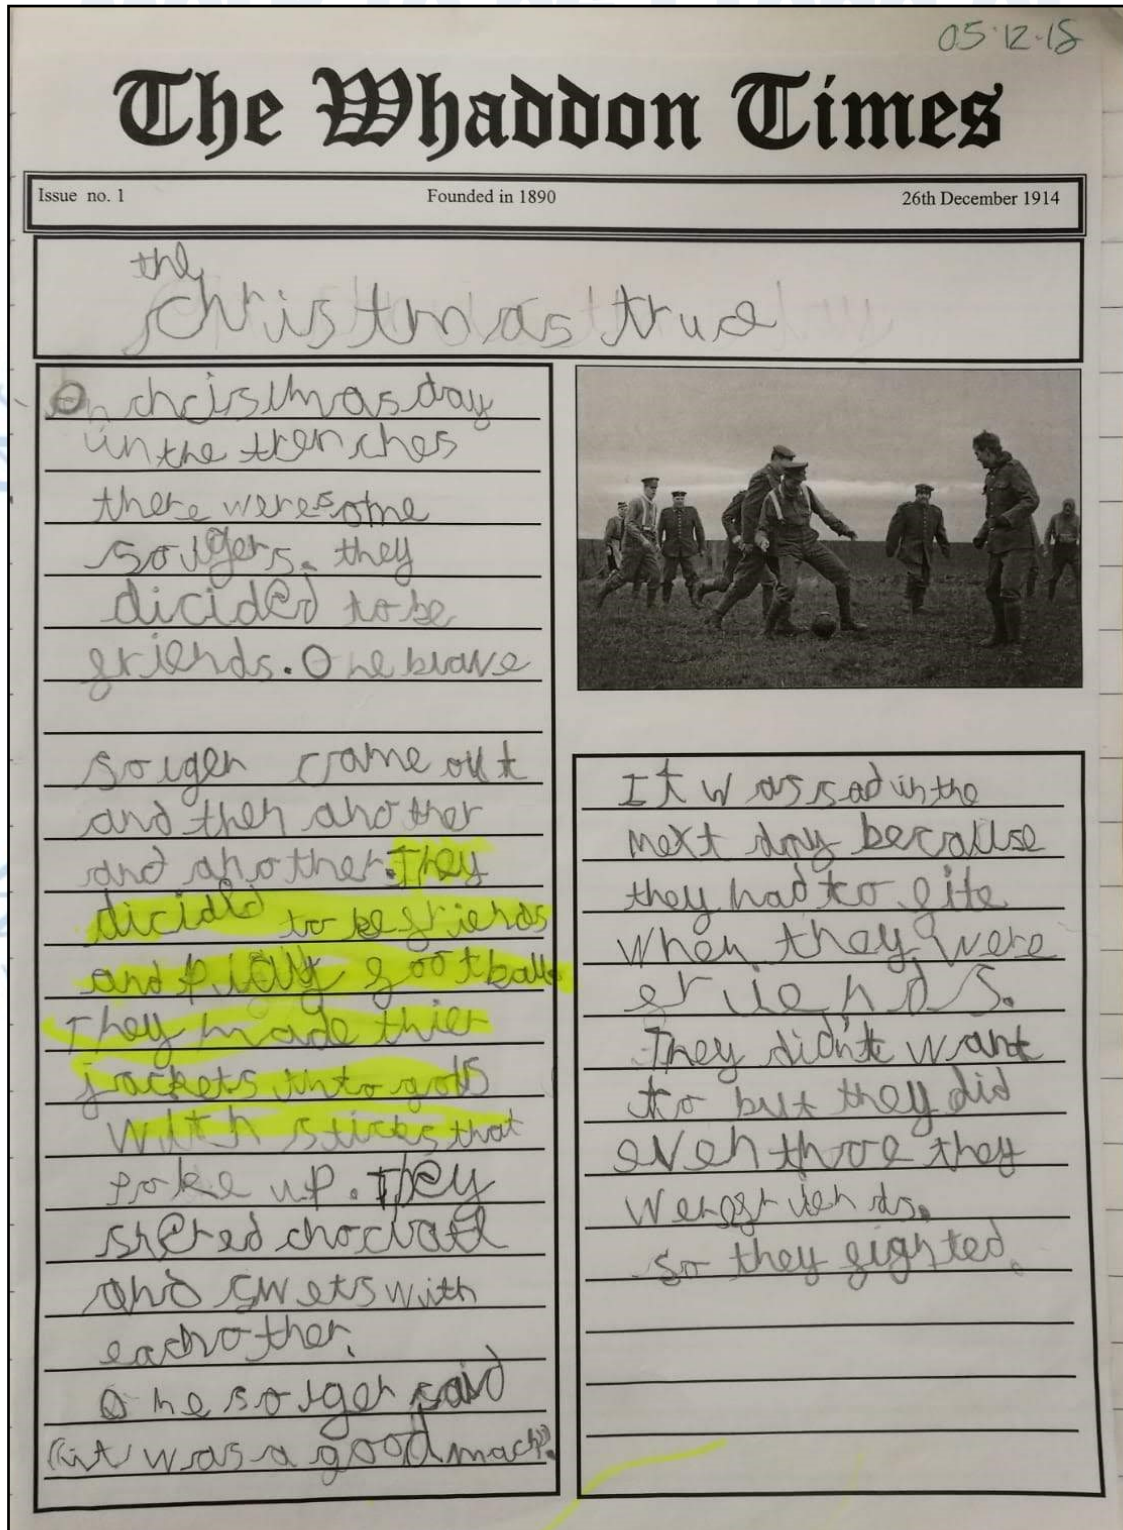 05.12.18
The Whaddon Times
Issue no. 1 Founded in 1890 26th December 1914
the
christmas truce
On christmas day
in the trenches
there were some
solgers. they
dicided to be
friends. One brave
solger came out
and then another
and another. They
dicided to be friends
and play football.
They made thier
jackets into gols
with sticks that
poke up. They
shered choclate
and swets with
eachother.
One solger said
"it was a good mach".
It was sad in the
next day because
they had to fite
when they were
friends.
They didn't want
to but they did
even thoe they
wer friends.
so they fighted.